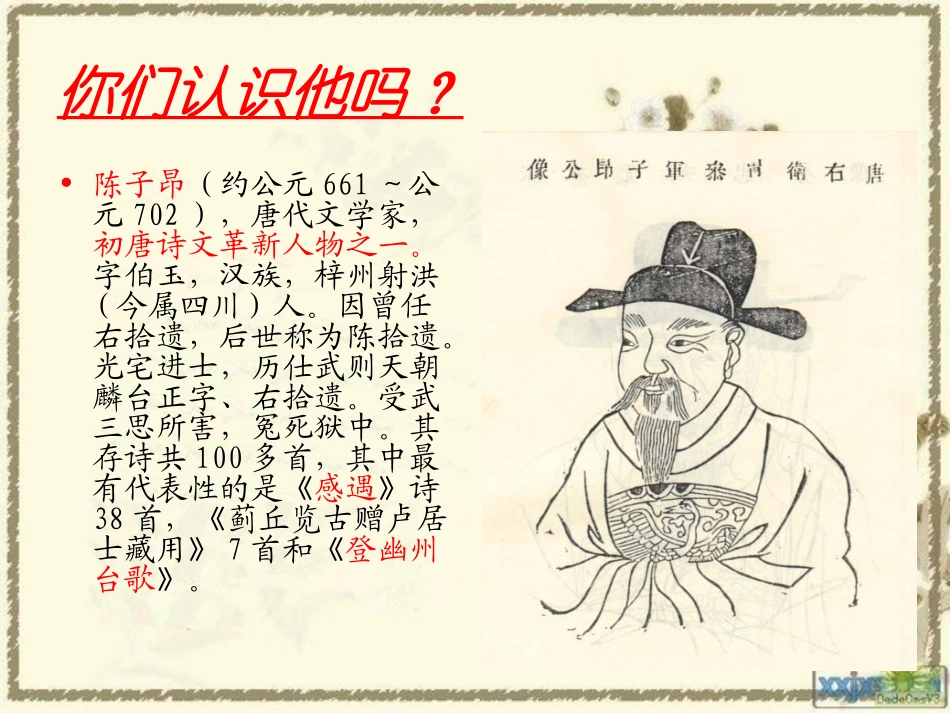 你们认识他吗？
• 陈子昂（约公元 661 ～公
元 702 ），唐代文学家，
初唐诗文革新人物之一。
字伯玉，汉族，梓州射洪
（今属四川）人。因曾任
右拾遗，后世称为陈拾遗。
光宅进士，历仕武则天朝
麟台正字、右拾遗。受武
三思所害，冤死狱中。其
存诗共 100 多首，其中最
有代表性的是《感遇》诗
38 首，《蓟丘览古赠卢居
士藏用》 7 首和《登幽州
台歌》。
唐右衛冑參軍子昂公像
DedeCmsV3